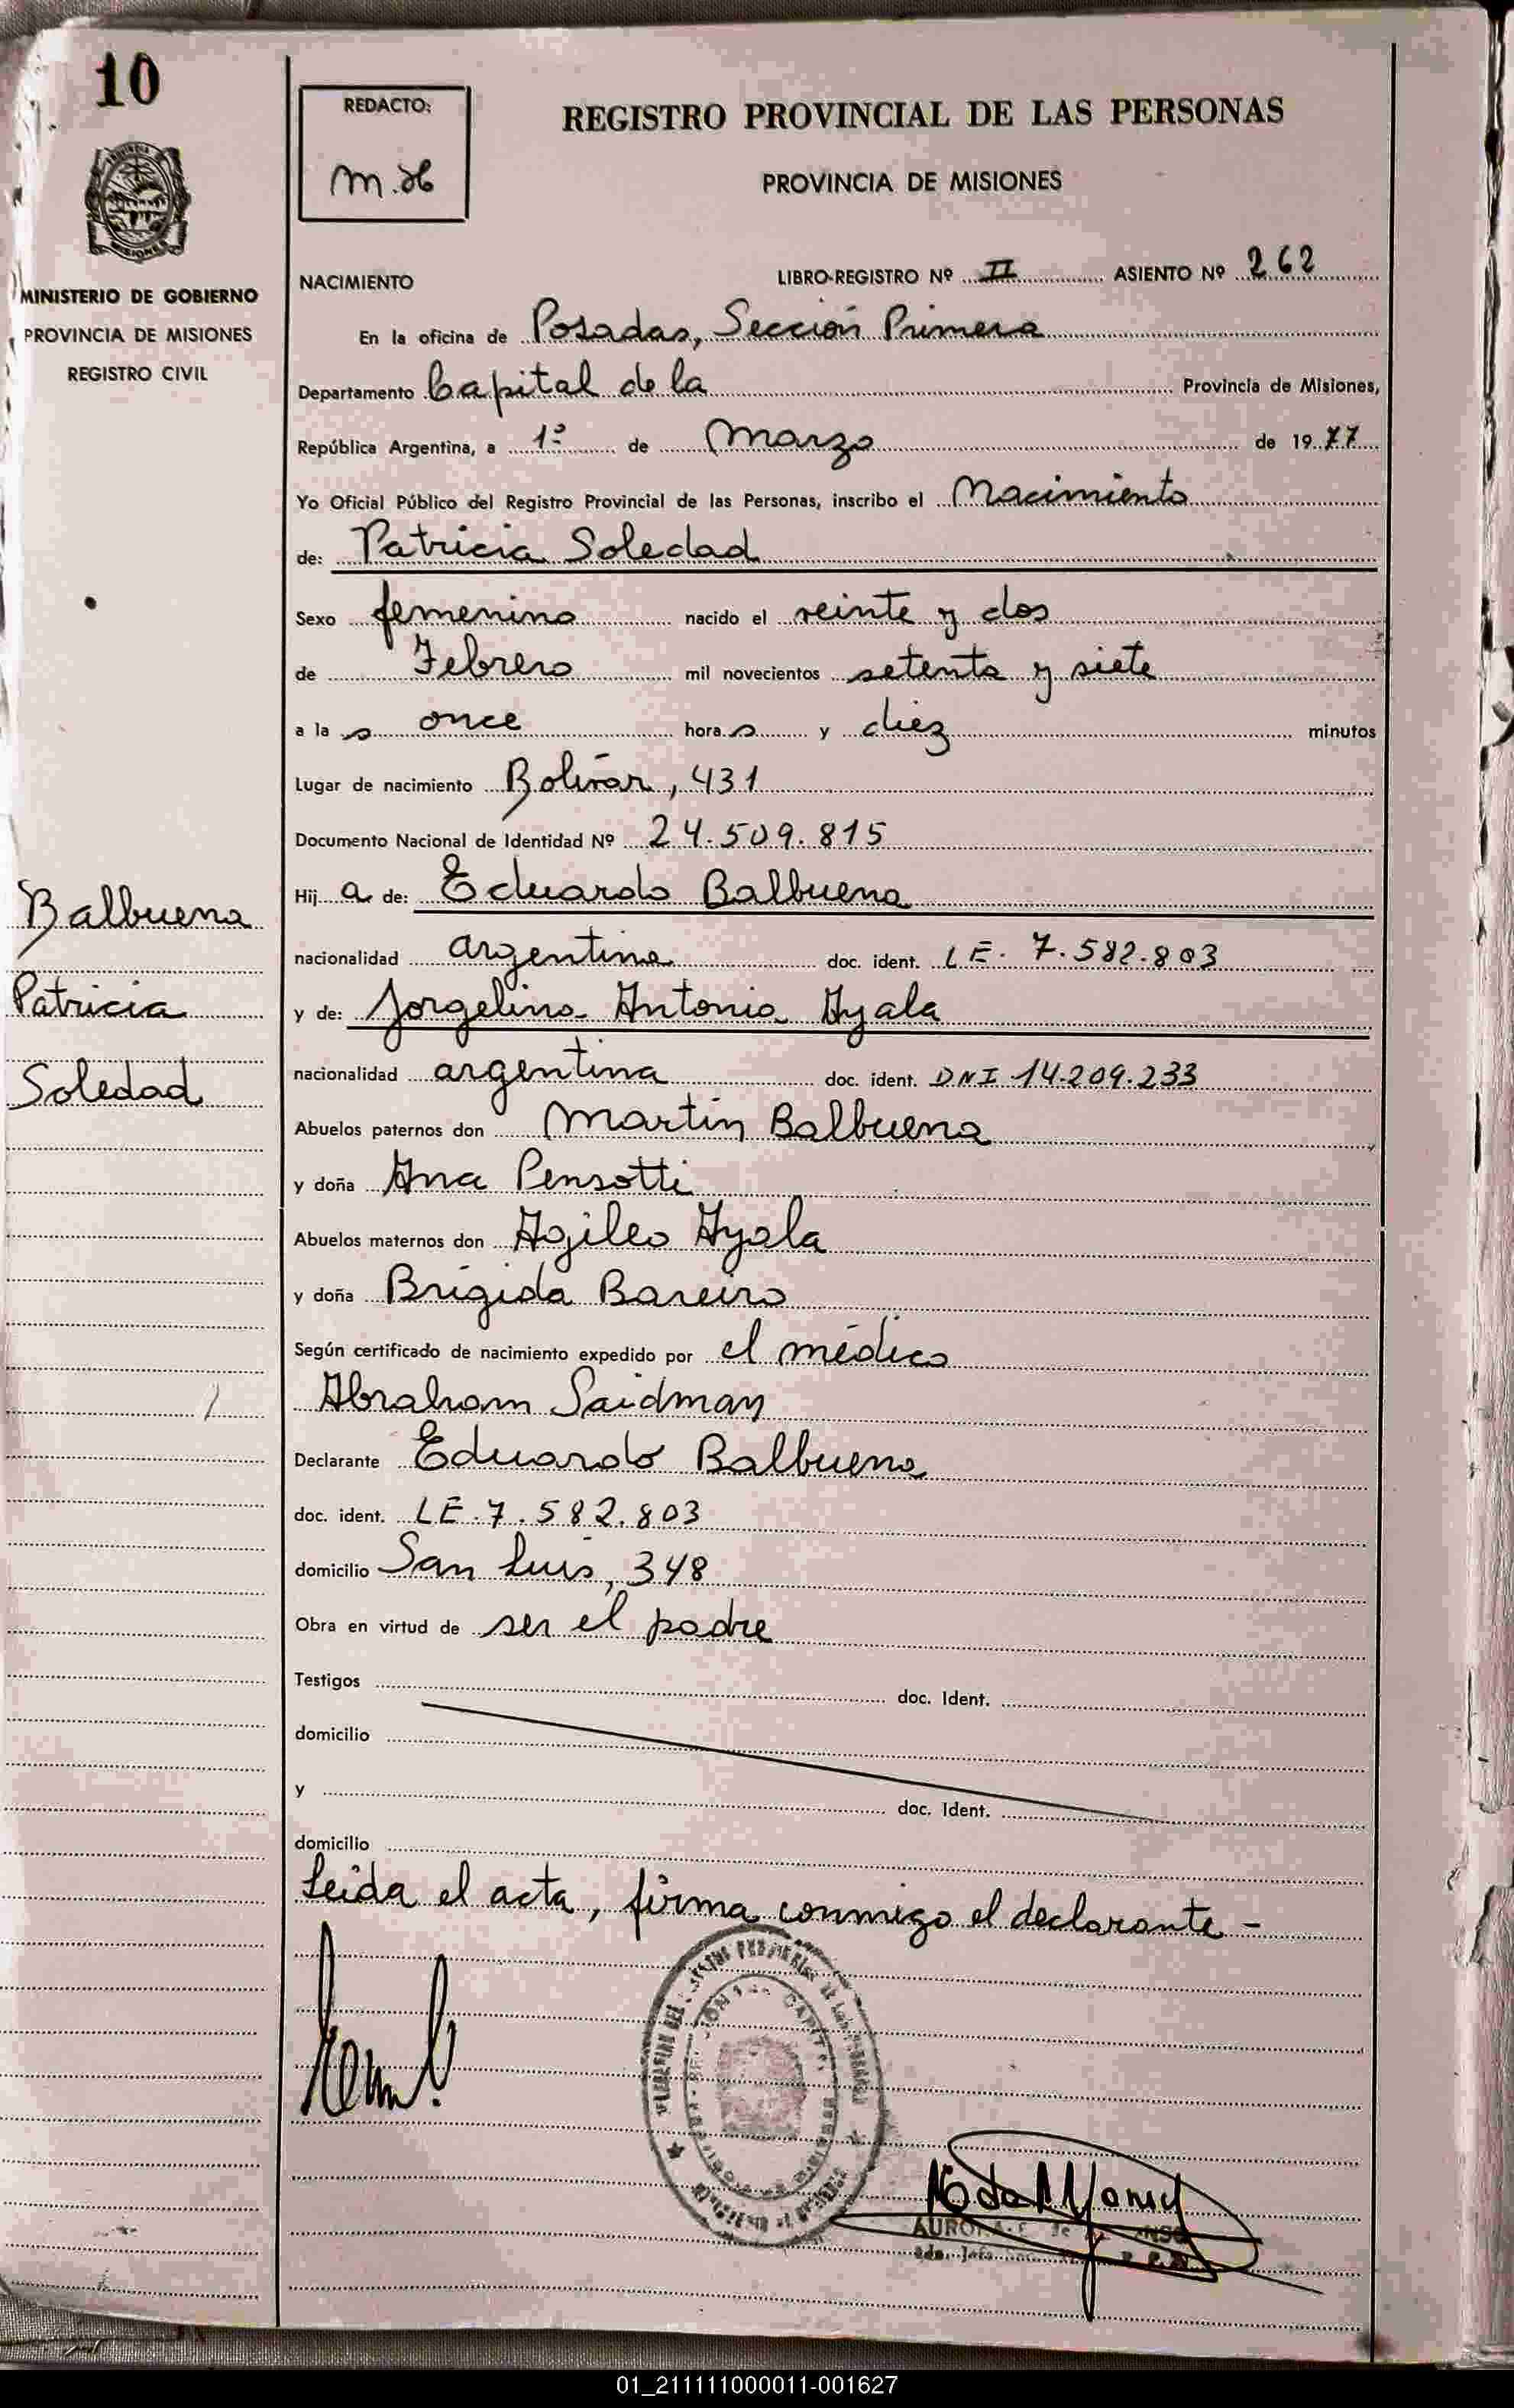 10
MISIONES
MINISTERIO DE GOBIERNO
PROVINCIA DE MISIONES
REGISTRO CIVIL
Balbuena
Patricia
Soledad
REDACTO:
REGISTRO PROVINCIAL DE LAS PERSONAS
PROVINCIA DE MISIONES
NACIMIENTO LIBRO-REGISTRO Nº II ASIENTO Nº 262
En la oficina de Posadas, Sección Primera
Departamento Capital de la Provincia de Misiones,
República Argentina, a 1º de Marzo de 1977
Yo Oficial Público del Registro Provincial de las Personas, inscribo el Nacimiento
de: Patricia Soledad
Sexo femenino nacido el veinte y dos
de Febrero mil novecientos setenta y siete
a la s once hora s y diez minutos
Lugar de nacimiento Bolívar, 431
Documento Nacional de Identidad Nº 24.509.815
Hij a de: Eduardo Balbuena
nacionalidad argentina doc. ident. LE. 7.582.803
y de: Jorgelina Antonia Ayala
nacionalidad argentina doc. ident. DNI 14.209.233
Abuelos paternos don Martín Balbuena
y doña Ana Pensotti
Abuelos maternos don Agileo Ayala
y doña Brígida Bareiro
Según certificado de nacimiento expedido por el médico
Abraham Saidman
Declarante Eduardo Balbuena
doc. ident. LE. 7.582.803
domicilio San Luis, 348
Obra en virtud de ser el padre
Testigos doc. Ident.
domicilio
y doc. Ident.
domicilio
Leída el acta, firma conmigo el declarante -
01_211111000011-001627